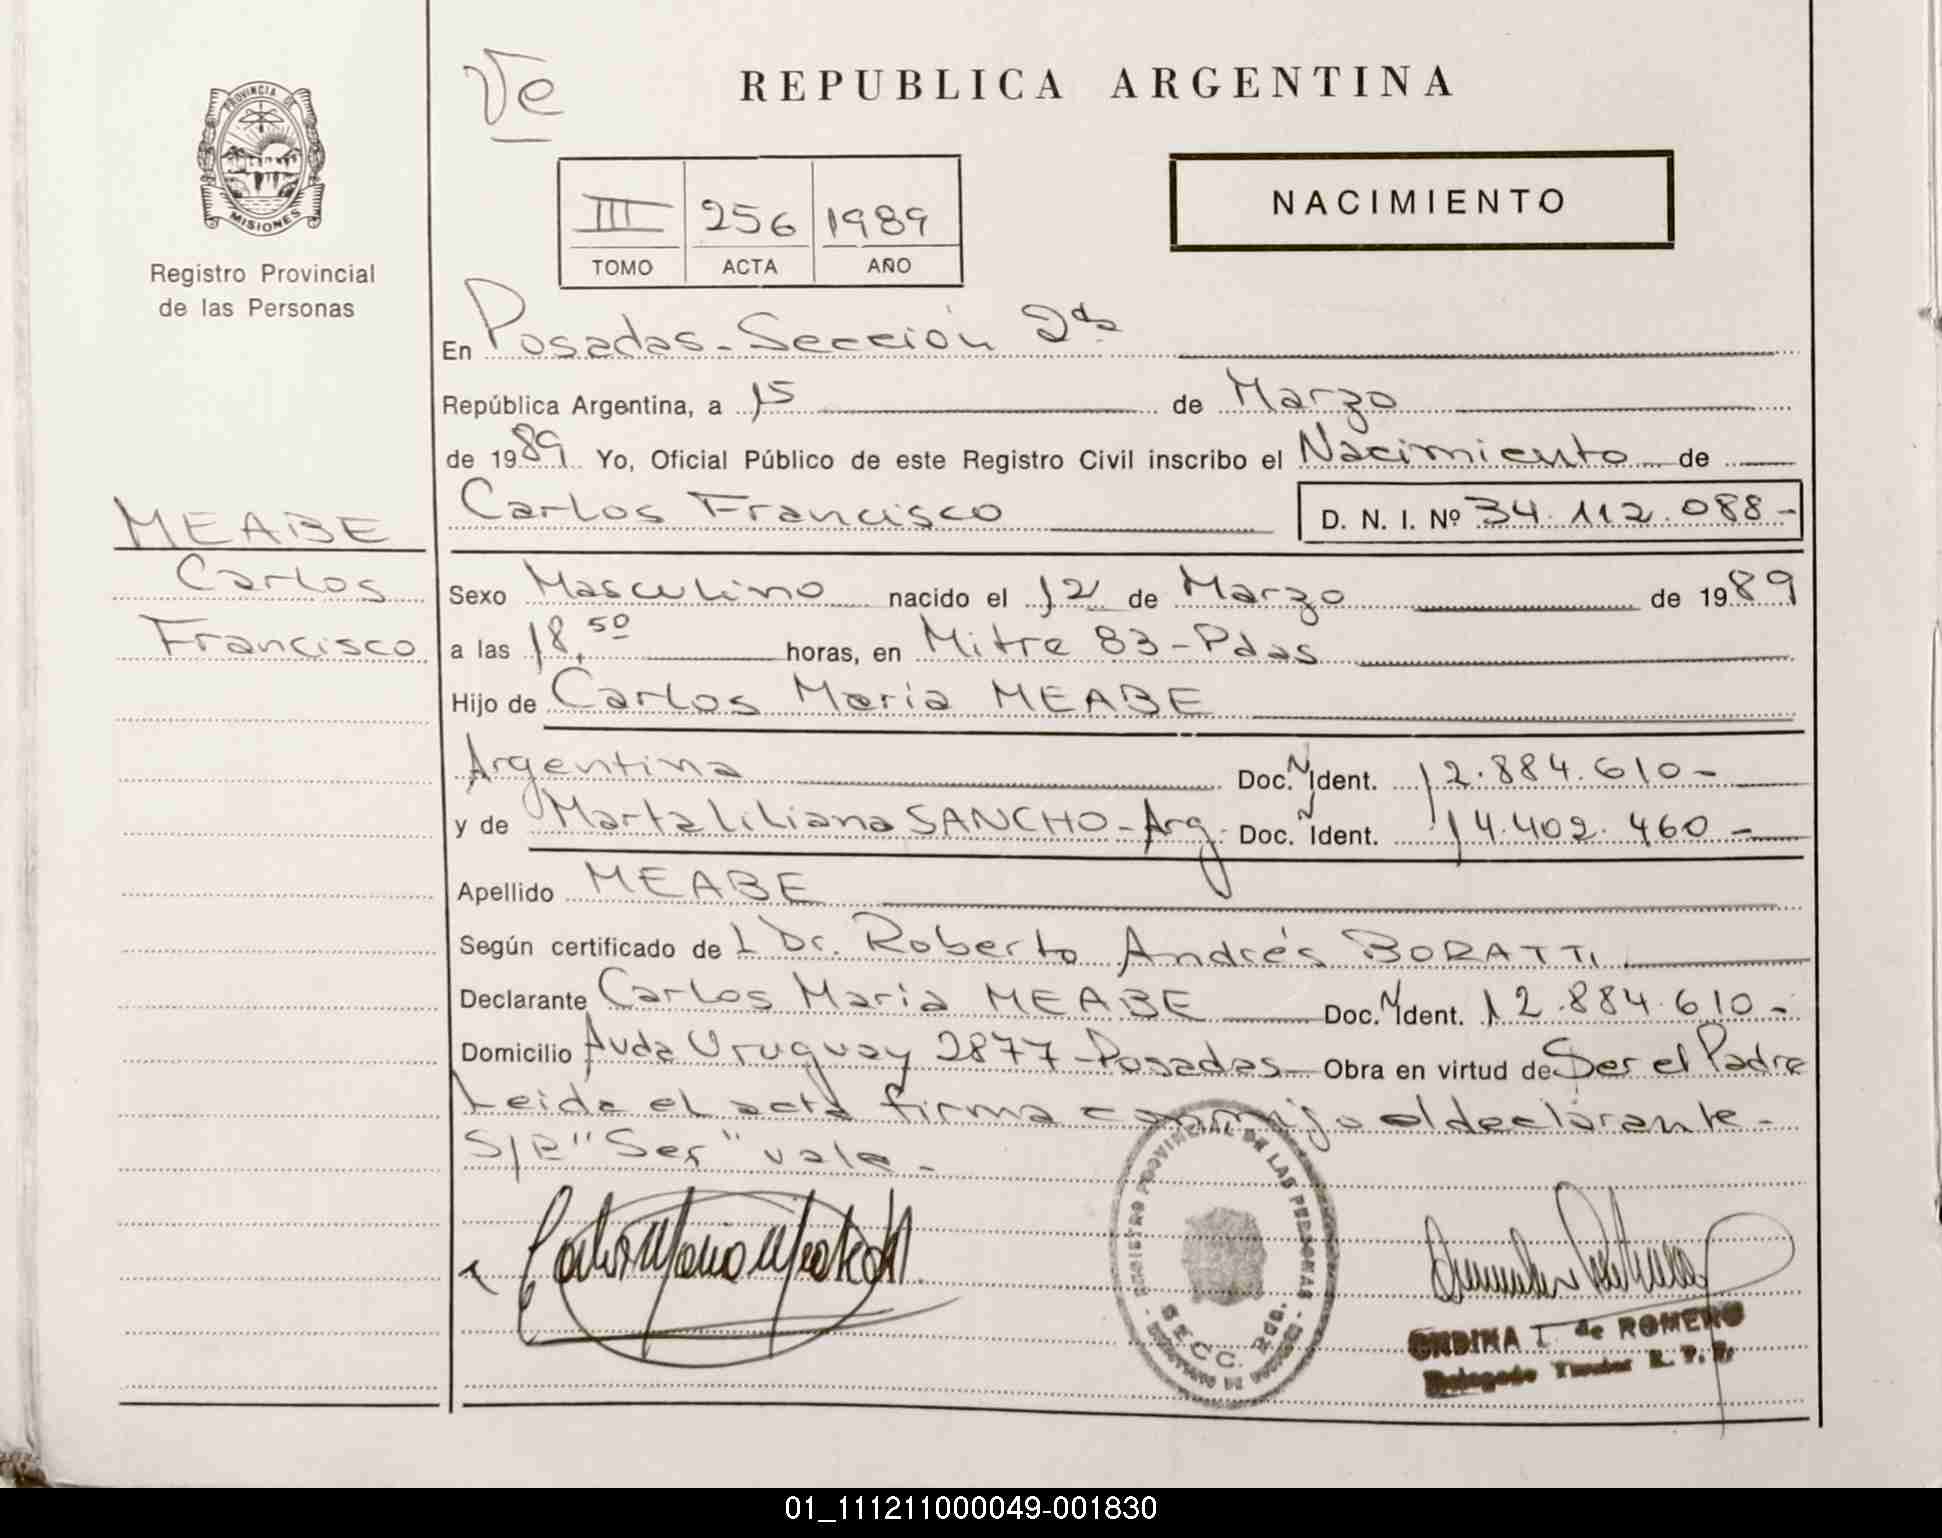 Ve
REPUBLICA ARGENTINA
PROVINCIA DE
MISIONES
Registro Provincial
de las Personas
III 256 1989
TOMO ACTA AÑO
NACIMIENTO
En Posadas-Sección 2da
República Argentina, a 15 de Marzo
de 1989. Yo, Oficial Público de este Registro Civil inscribo el Nacimiento de
Carlos Francisco D. N. I. Nº 34.112.088-
MEABE
Carlos
Francisco
Sexo Masculino nacido el 12 de Marzo de 1989
a las 18,50 horas, en Mitre 83-Pdas
Hijo de Carlos María MEABE
Argentina Doc. N Ident. 12.884.610-
y de Marta Liliana SANCHO-Arg. Doc. N Ident. 14.402.460-
Apellido MEABE
Según certificado de L Dr. Roberto Andrés BORATTI
Declarante Carlos María MEABE Doc. N Ident. 12.884.610-
Domicilio Avda Uruguay 2877-Posadas Obra en virtud de Ser el Padre
Leida el acta firma conmigo el declarante-
S/R "Ser" vale-
REGISTRO PROVINCIAL DE LAS PERSONAS
SECC. 2da.
ONDINA I. de ROMERO
Delegado Titular R. P. P.
01_111211000049-001830